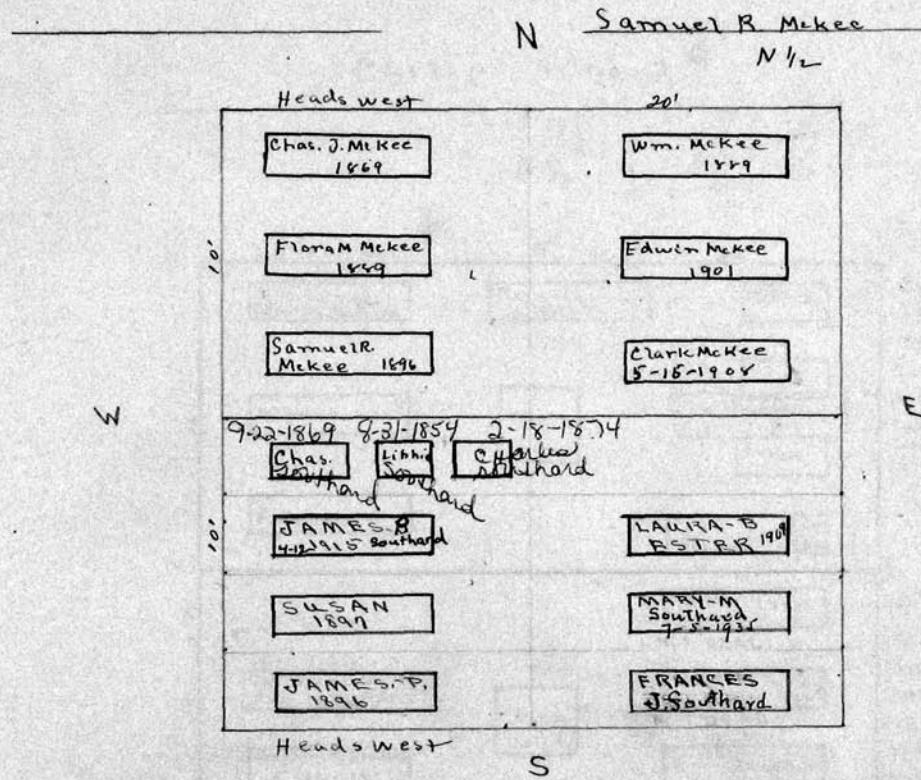 N Samuel R. McKee
N 1/2
Heads west 20'
Chas. J. McKee
1869
Wm. McKee
1889
10'
Flora M McKee
1889
Edwin McKee
1901
Samuel R.
McKee 1896
Clark McKee
5-15-1908
W
E
9-22-1869 8-31-1854 2-18-1874
Chas.
Southard
Libbie
Southard
Charles
Southard
10'
JAMES-B
4-12-1915 Southard
LAURA-B
ESTER 1909
SUSAN
1897
MARY-M
Southard
7-5-1935
JAMES-P.
1896
FRANCES
J. Southard
Heads west
S